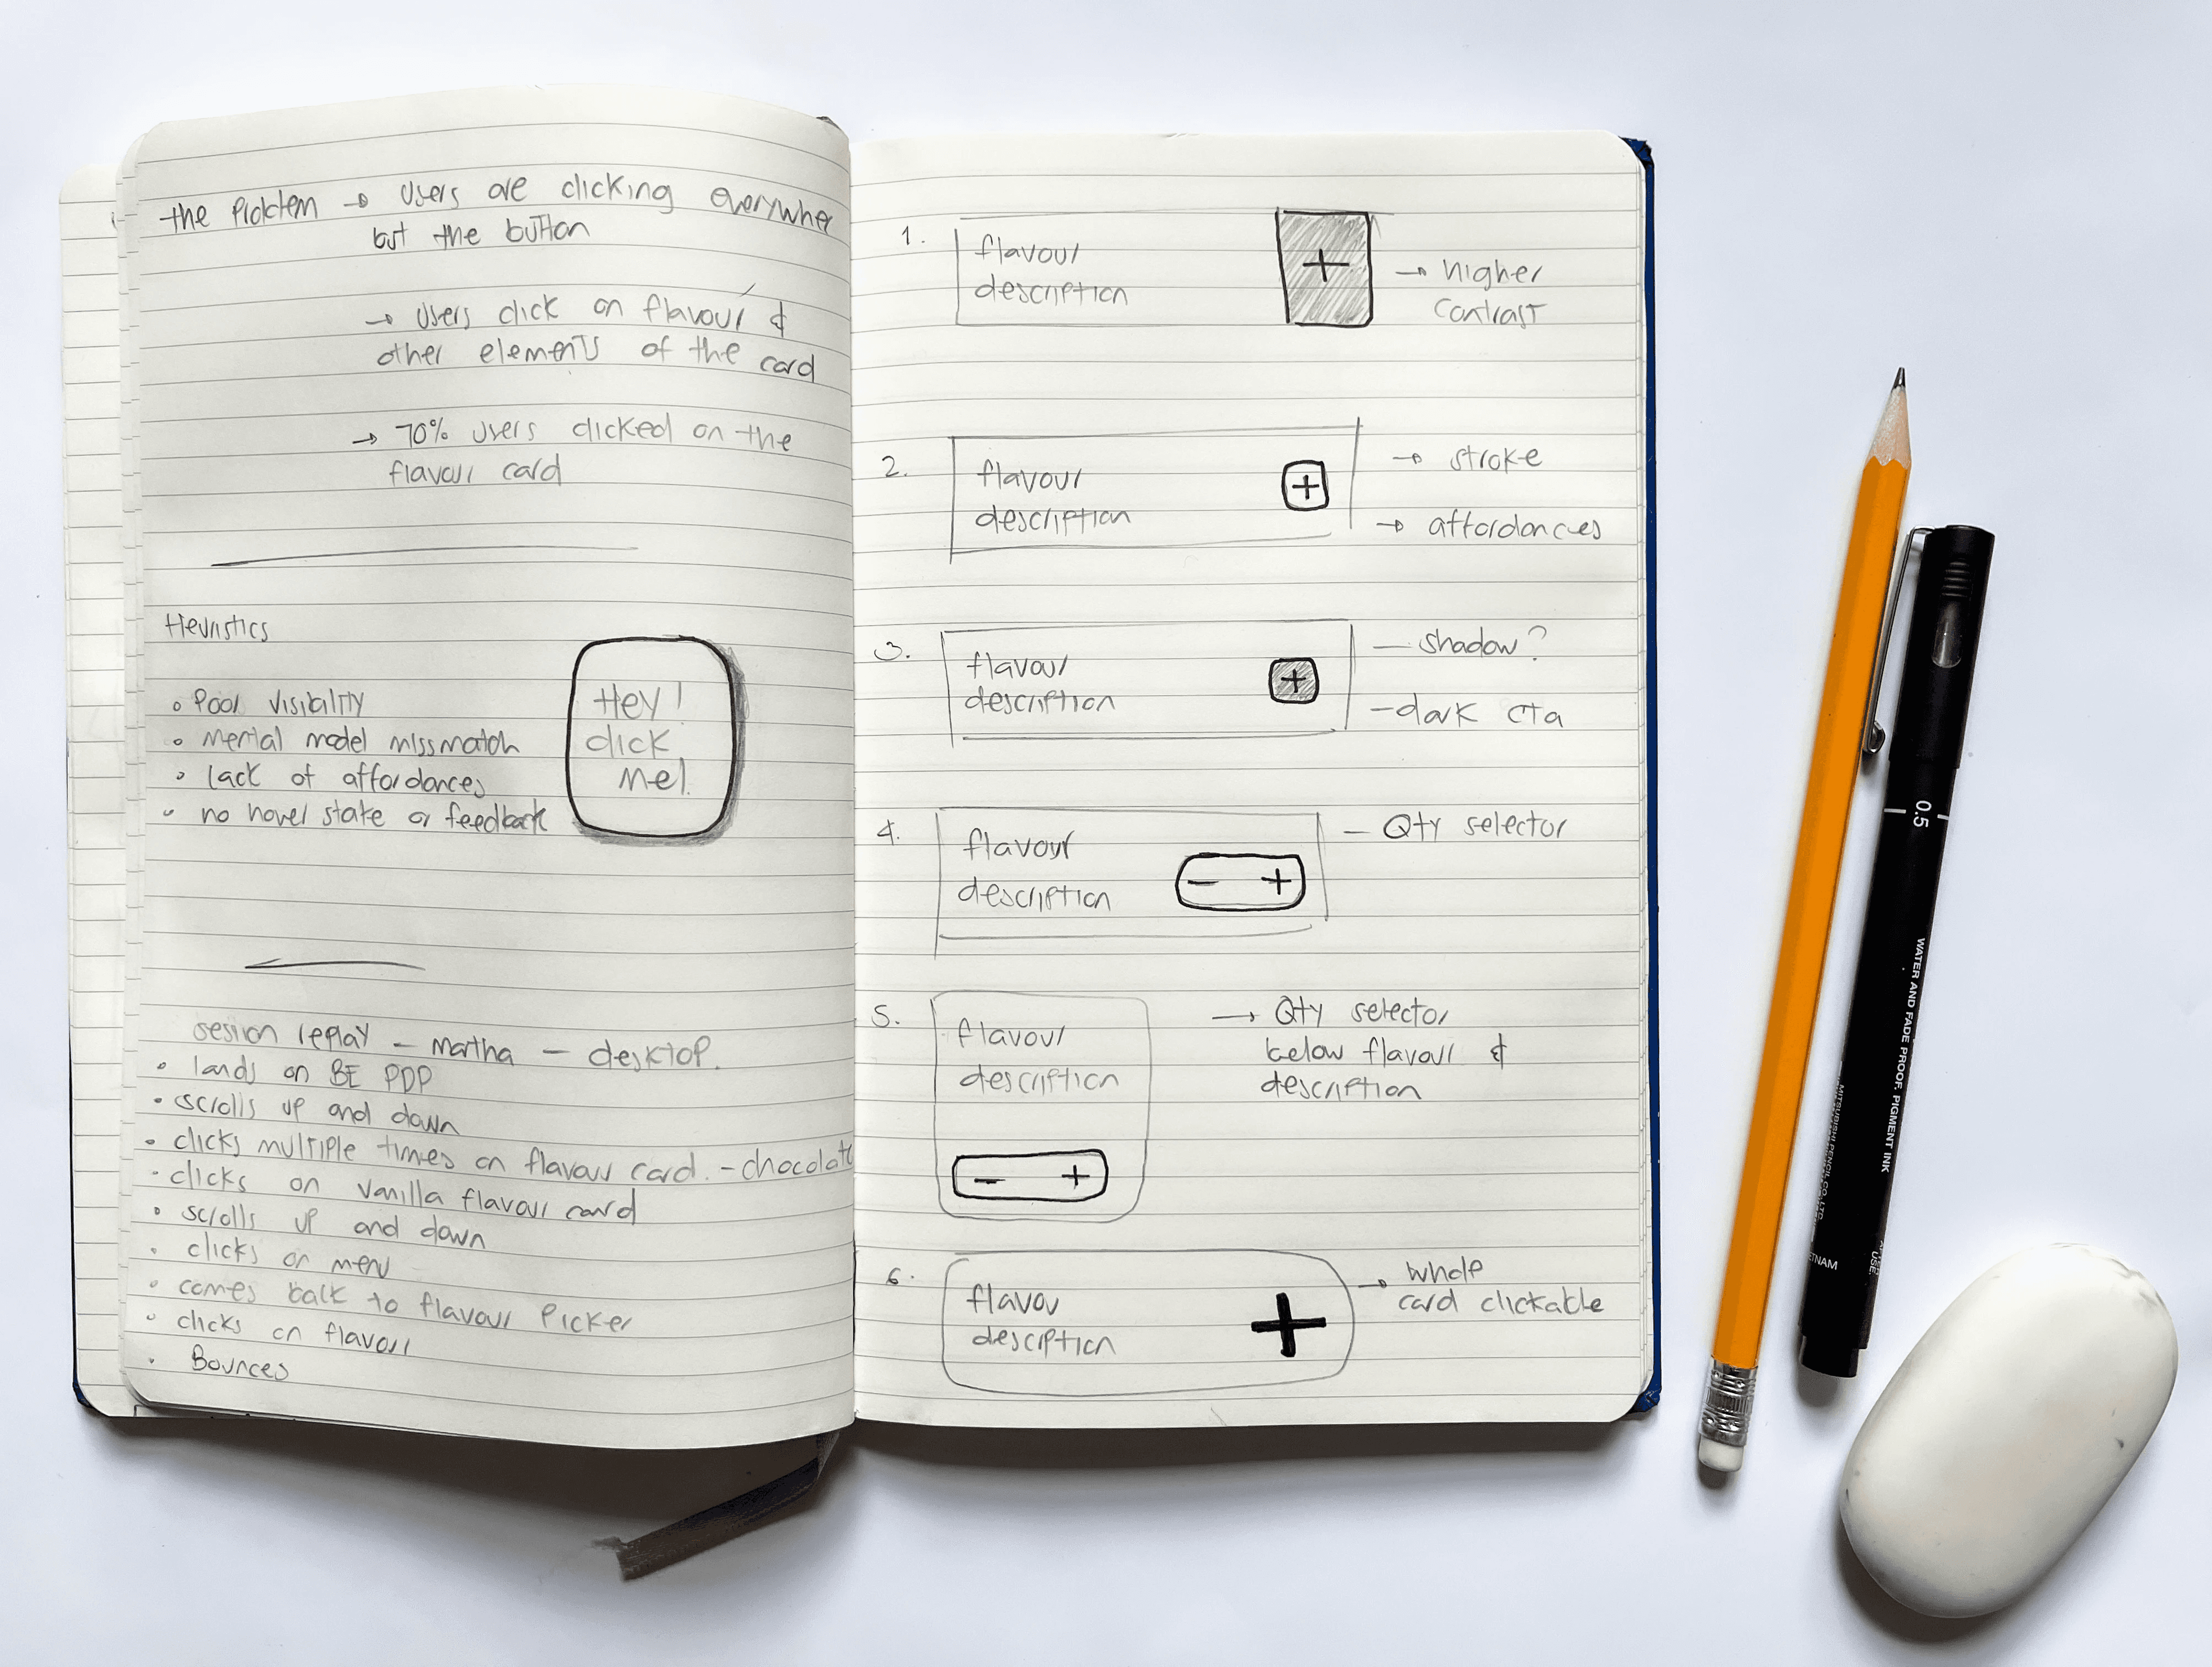 the Problem → Users are clicking everywhere
but the button
→ Users click on flavour &
other elements of the card
→ 70% users clicked on the
flavour card
Heuristics
• Poor visibility
• Mental model missmatch
• lack of affordances
• no hover state or feedback
Hey!
click
me!
session replay – martha – desktop.
• lands on BE PDP
• scrolls up and down
• clicks multiple times on flavour card. – chocolate
• clicks on vanilla flavour card
• scrolls up and down
• clicks on menu
• comes back to flavour Picker
• clicks on flavour
• Bounces
1.
flavour
description
+
→ higher
contrast
2.
flavour
description
+
→ stroke
→ affordances
3.
flavour
description
+
– shadow?
– dark cta
4.
flavour
description
– +
– Qty selector
5.
flavour
description
– +
→ Qty selector
below flavour &
description
6.
flavou
description
+
→ whole
card clickable
0.5
WATER AND FADE PROOF, PIGMENT INK
MITSUBISHI PENCIL CO., LTD.